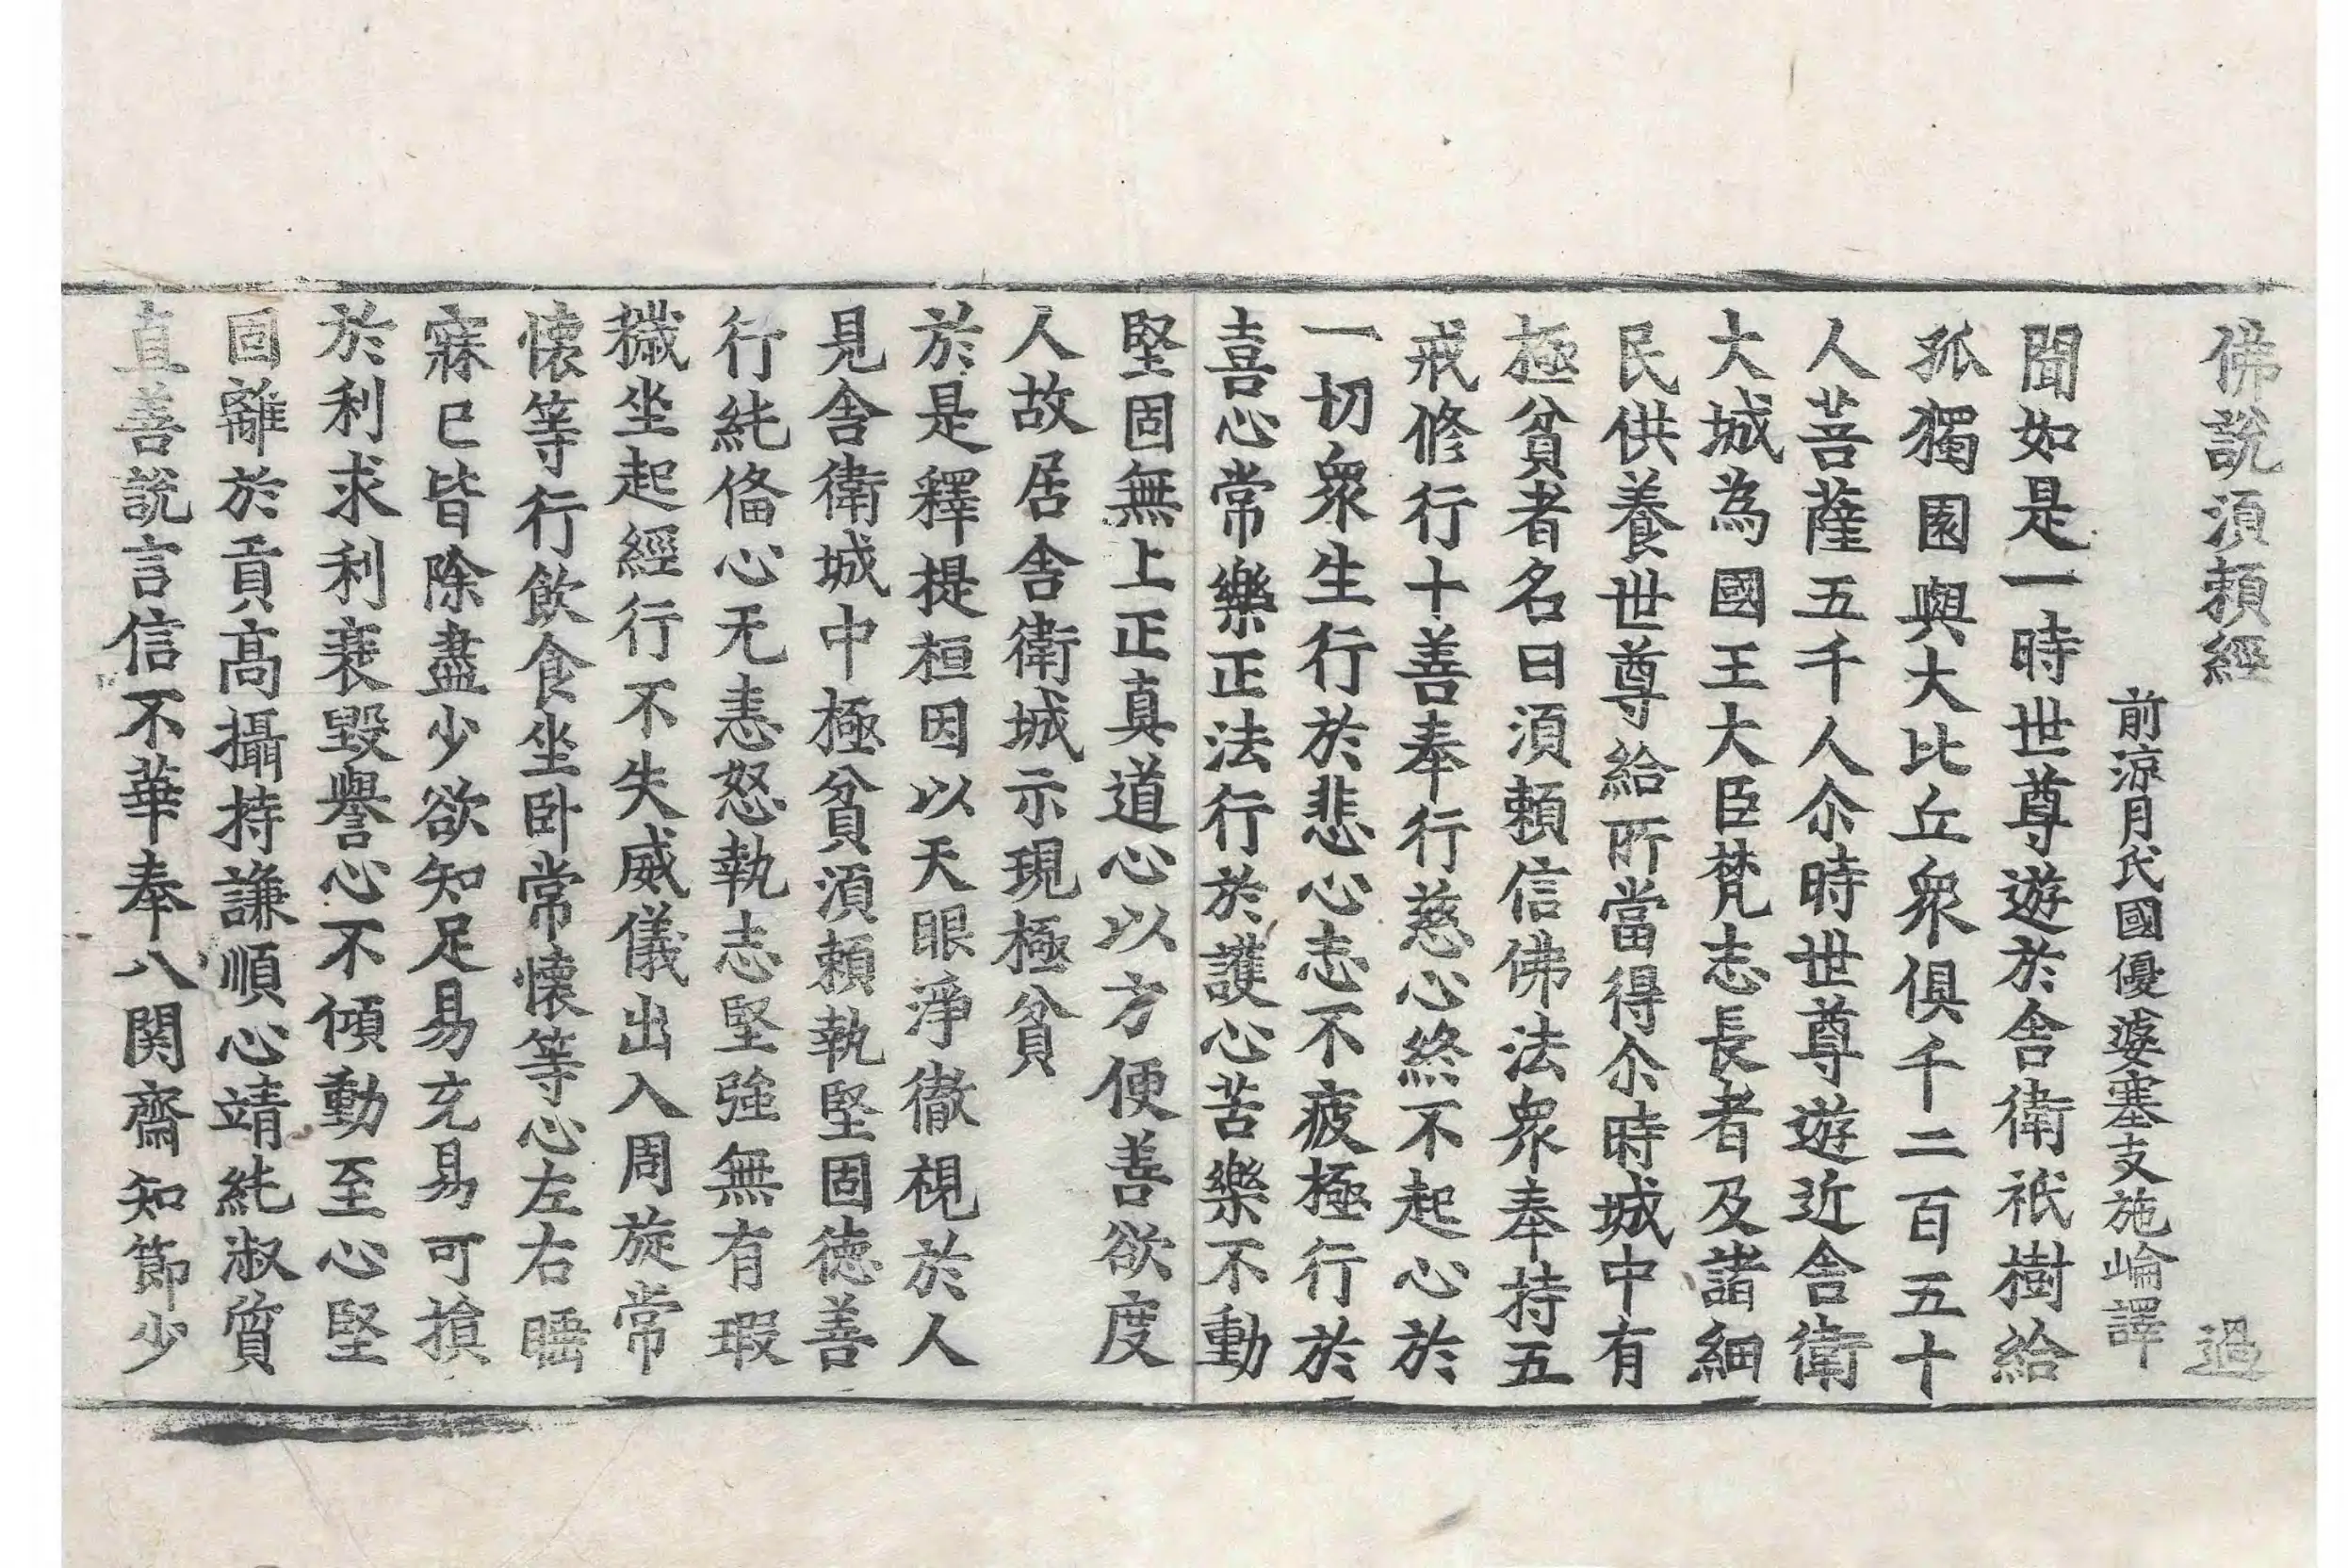 佛說湏頼經 過
前涼月氏國優婆塞支施崘譯
聞如是一時世尊遊於舍衛祇樹給
孤獨園與大比丘衆俱千二百五十
人菩薩五千人尒時世尊遊近舍衛
大城為國王大臣梵志長者及諸細
民供養世尊給所當得尒時城中有
極貧者名曰湏頼信佛法衆奉持五
戒修行十善奉行慈心終不起心於
一切衆生行於悲心志不疲極行於
喜心常樂正法行於護心苦樂不動
堅固無上正真道心以方便善欲度
人故居舍衛城示現極貧
於是釋提桓因以天眼淨徹視於人
見舍衛城中極貧湏頼執堅固徳善
行純俻心无恚怒執志堅強無有瑕
穢坐起經行不失威儀出入周旋常
懐等行飲食坐卧常懐等心左右睡
寐已皆除盡少欲知足易充易可損
於利求利衰毀譽心不傾動至心堅
固離於貢高攝持謙順心靖純淑質
直善說言信不華奉八関齋知節少